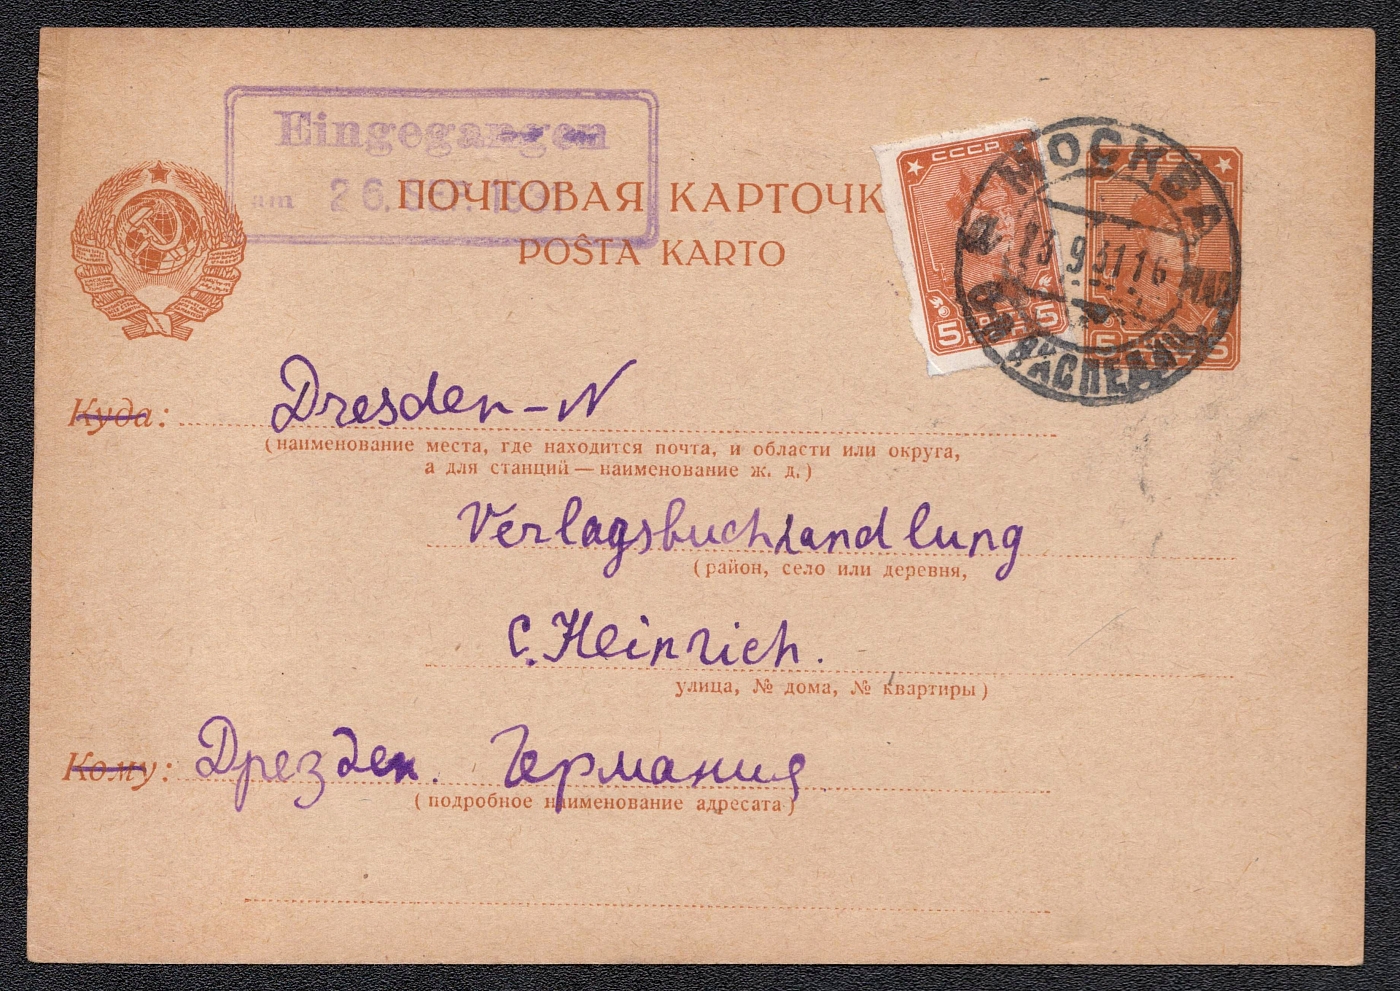 Eingegangen
am 26. SEP. 1931
ПОЧТОВАЯ КАРТОЧК
POŜTA KARTO
СССР
5 5
МОСКВА
13 9 31 16
ЭКСПЕДИЦ
5 5
Куда: Dresden-N
(наименование места, где находится почта, и области или округа,
а для станций — наименование ж. д.)
Verlagsbuchhandlung
(район, село или деревня,
C. Heinrich.
улица, № дома, № квартиры)
Кому: Дрезден. Германия
(подробное наименование адресата)